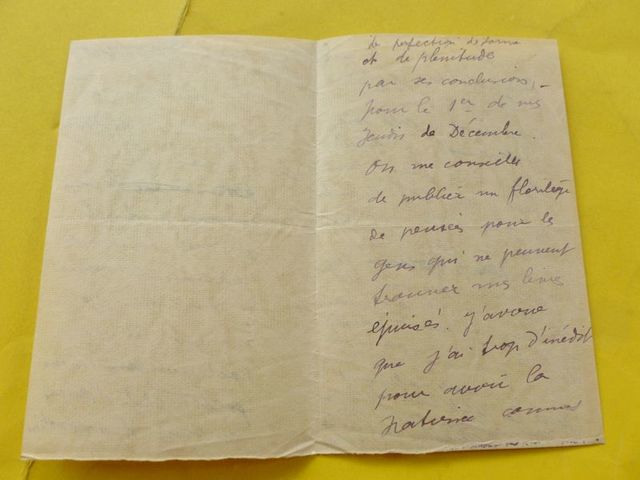 de perfection de forme
et de plenitude
par ses conclusions, –
pour le 1er de mes
jeudis de Décembre.
On me conseille
de publier un florilège
de pensées pour les
gens qui ne peuvent
trouver mes livres
épuisés. J'avoue
que j'ai trop d'inédit
pour avoir la